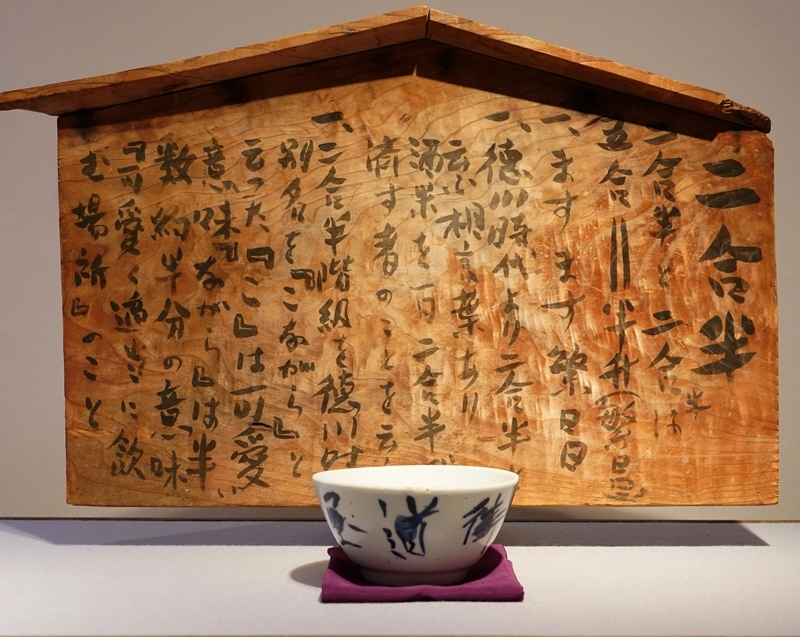 二合半
一、二合半と二合半は
五合‖半升(繁昌
一、ますます繁昌
一、徳川時代より二合半と
云ふ相言葉あり
酒米を一日二合半
済す者のことを云
一、二合半階組を徳川時
別名を『こながら』と
云つた『こ』は可愛い
意味『ながら』は半
数約半分の意味
『可愛く適当に飲
む場所』のこと
道